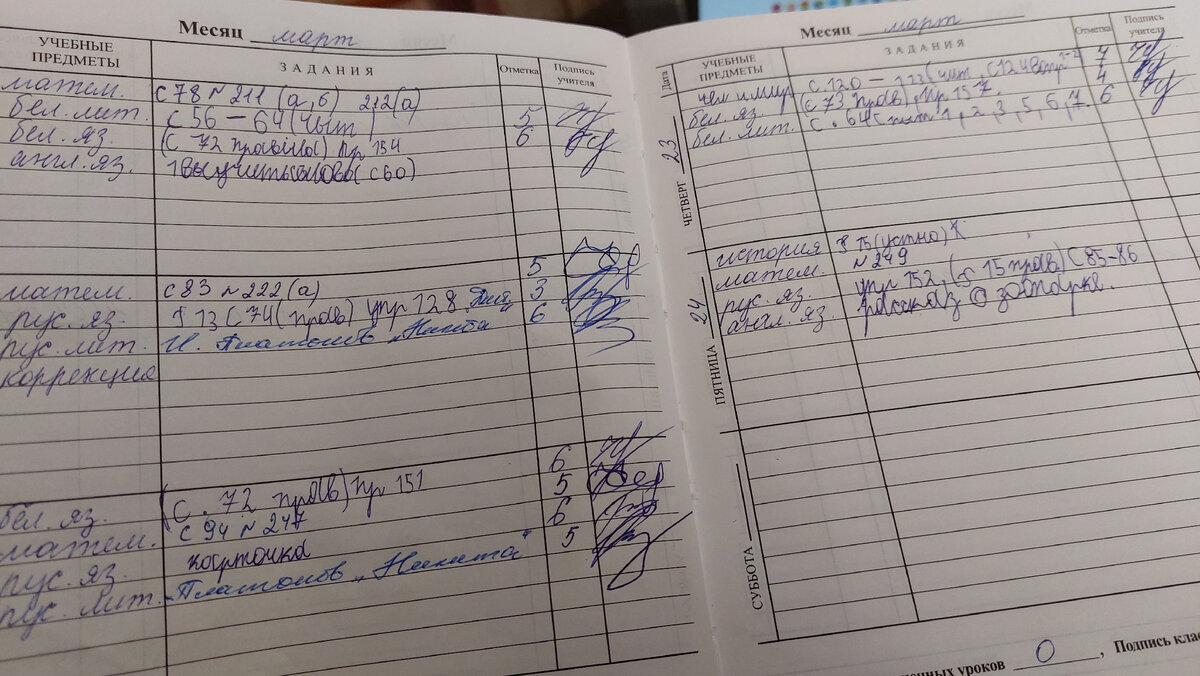 Месяц март
УЧЕБНЫЕ ПРЕДМЕТЫ ЗАДАНИЯ Отметка Подпись учителя
матем. с 78 N 211 (а, б) 212(а)
бел. лит. с 56 – 64 (чыт) 5
бел. яз. (с 72 правіла) пр 154 6
англ. яз. (с 60)
5
матем. с 83 N 222 (а) 3
рус. яз. § 13 С 74 (прав) упр 128 6
рус. лит. Платонов „Никита"
коррекция
6
бел. яз. (с. 72 прав) пр 151 5
матем. с 94 N 247 6
рус. яз. карточка 5
рус. лит. Платонов „Никита"
Месяц март
Дата УЧЕБНЫЕ ПРЕДМЕТЫ ЗАДАНИЯ Отметка Подпись учителя
чел и мир с. 120 – 123 (чит, с 124 вопр 1-2 7
бел. яз. (с 73 прав), пр. 157. 4
бел. лит. с. 64 1, 2, 3, 5, 6, 7. 6
ЧЕТВЕРГ 23
история § 15 (устно)
матем. N 249
рус. яз. упр 152, (§ 15 прав) С 85-86
англ. яз. рассказ о зоопарке.
ПЯТНИЦА 24
СУББОТА
уроков 0, Подпись клас